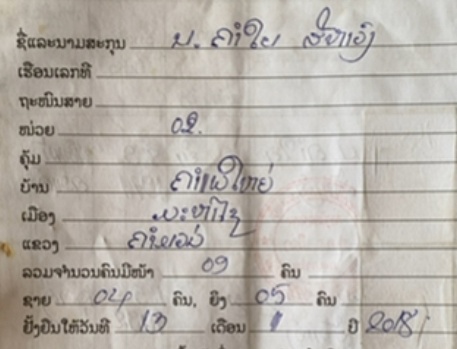 ຊື່ແລະນາມສະກຸນ ນ. ຄຳໃບ
ເຮືອນເລກທີ
ຖະໜົນສາຍ
ໜ່ວຍ 02.
ຄຸ້ມ
ບ້ານ
ເມືອງ
ແຂວງ ຄຳມ່ວນ
ລວມຈຳນວນຄົນມີໜ້າ 09 ຄົນ
ຊາຍ 04 ຄົນ, ຍິງ 05 ຄົນ
ຢັ້ງຢືນໃຫ້ວັນທີ 13 ເດືອນ 1 ປີ 2018